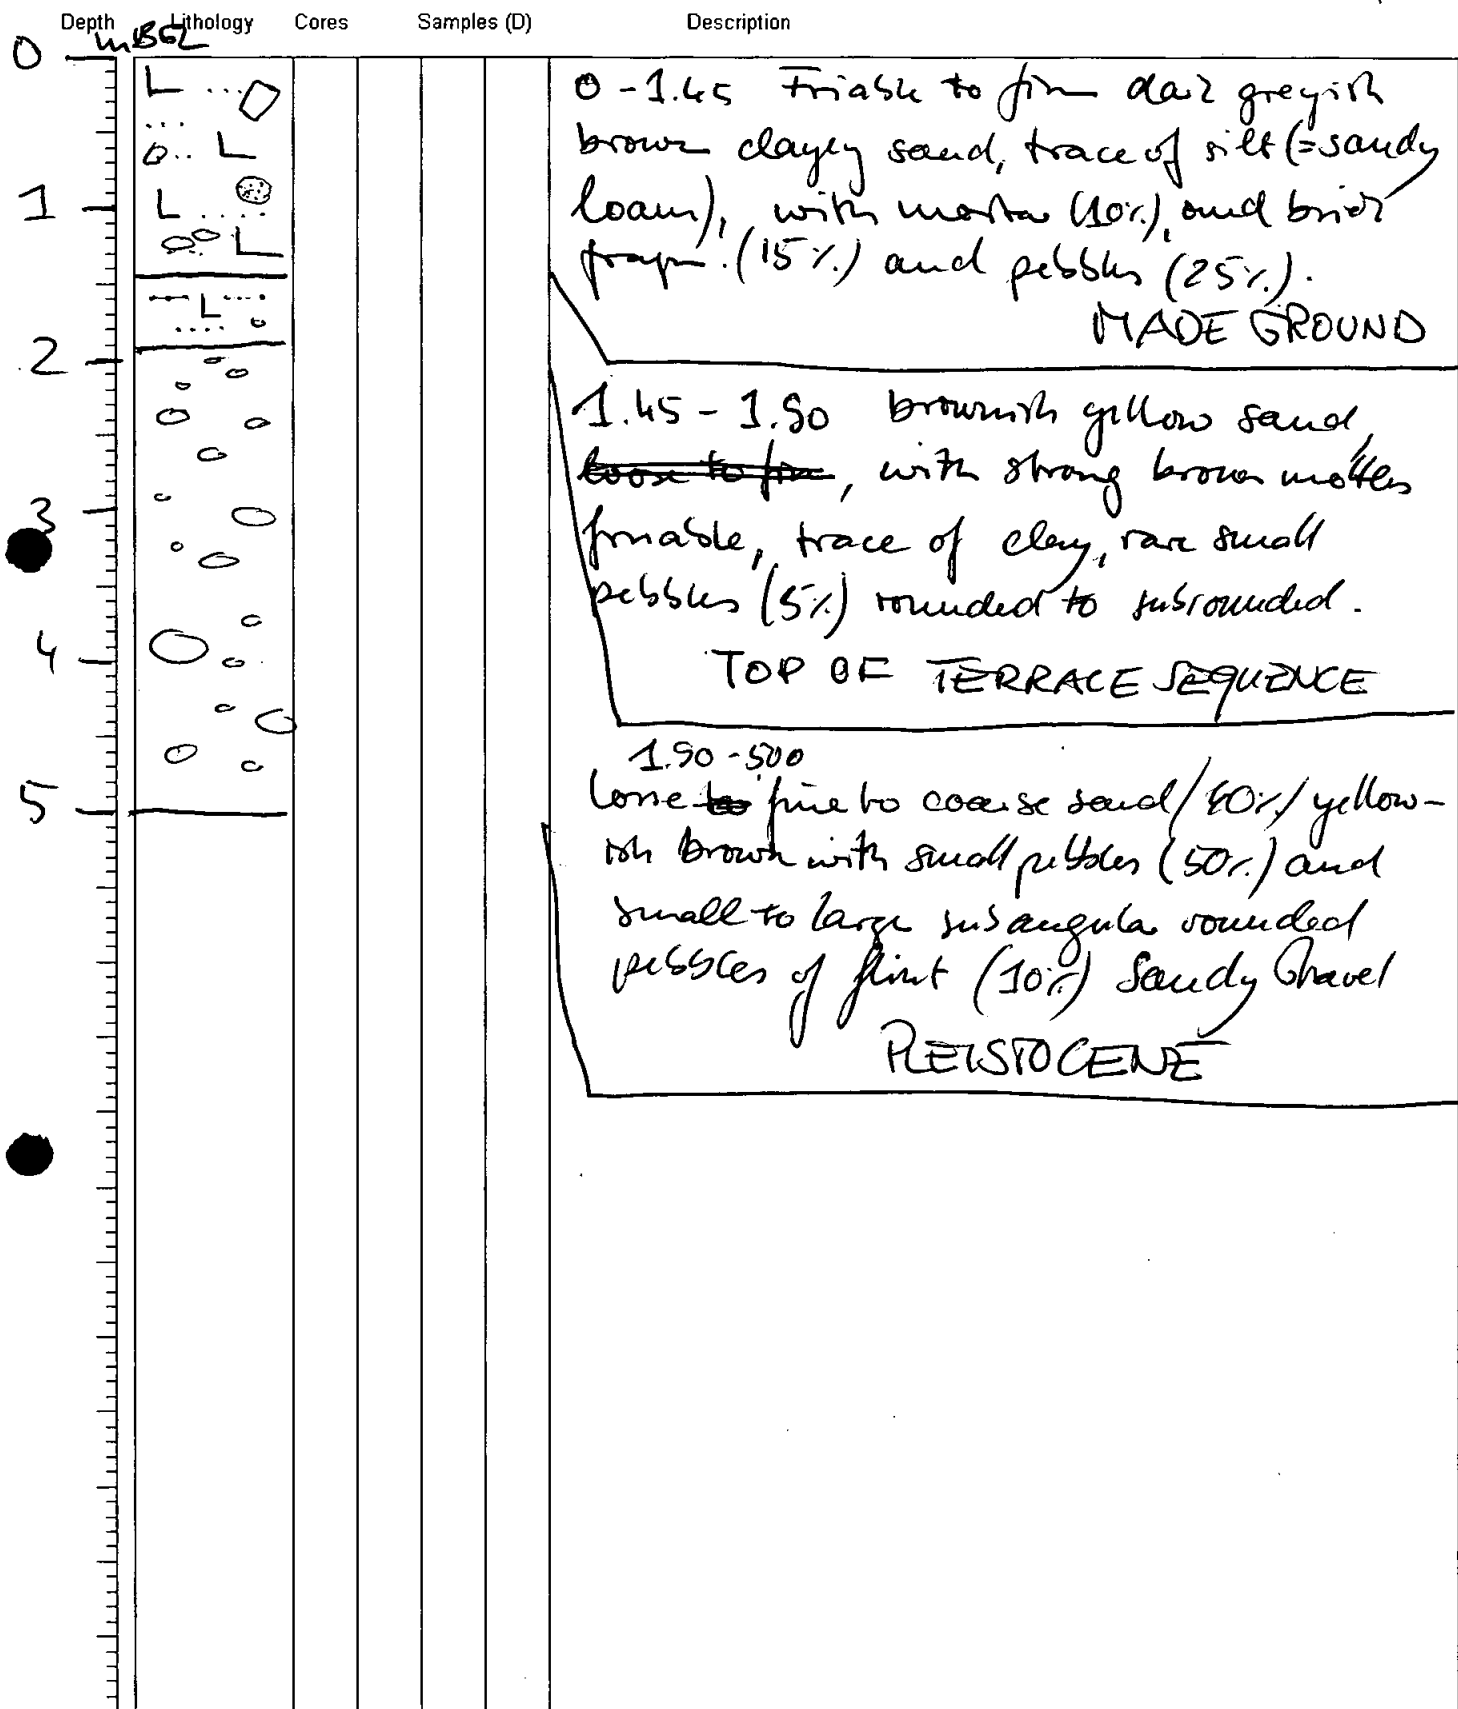 Depth Lithology Cores Samples (D) Description
mBGL
0
1
2
3
4
5
0 - 1.45 Friable to firm dark greyish
brown clayey sand, trace of silt (=sandy
loam), with mortar (10%), and brick
fragm. (15%) and pebbles (25%).
MADE GROUND
1.45 - 1.90 brownish yellow sand,
loose to firm, with strong brown mottles
friable, trace of clay, rare small
pebbles (5%) rounded to subrounded.
TOP OF TERRACE SEQUENCE
1.90 - 500
loose to fine to coarse sand /40%/ yellow-
ish brown with small pebbles (50%) and
small to large subangular rounded
pebbles of flint (10%) Sandy Gravel
PLEISTOCENE